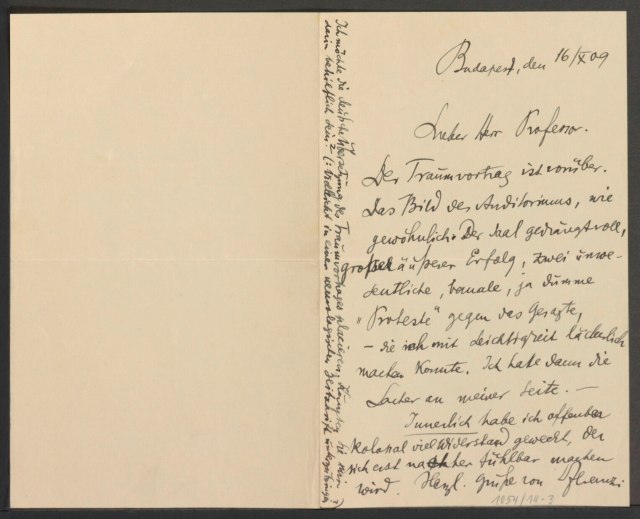 Budapest, den 16/X 09
Lieber Herr Professor.
Der Traumvortrag ist vorüber.
Das Bild des Auditoriums, wie
gewöhnlich: Der Saal gedrängt voll,
großer äußerer Erfolg, zwei unwe-
sentliche, banale, ja dumme
„Proteste" gegen das Gesagte,
– die ich mit Leichtigkeit lächerlich
machen konnte. Ich hatte dann die
Lacher an meiner Seite. –
Innerlich habe ich offenbar
kolossal viel Widerstand geweckt, der
sich erst nachher fühlbar machen
wird. Herzl. Grüße von Ferenczi
1954/14-3
Ich möchte die deutsche Übersetzung des Traumvortrages placieren; Könnten Sie mir
darin behilflich sein? (: Vielleicht in einer neurologischen Zeitschrift unterzubringen? )